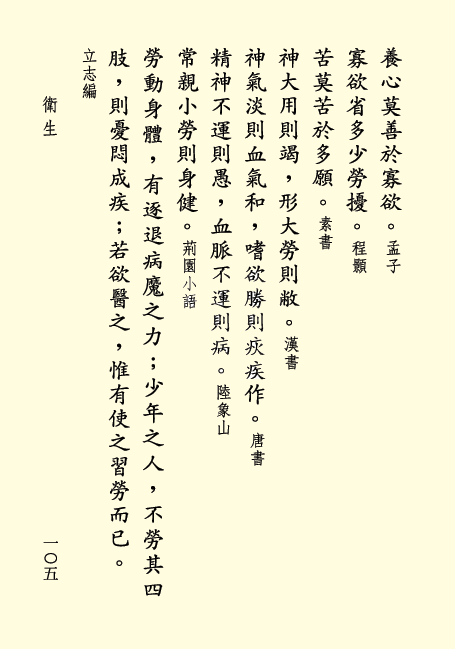 養心莫善於寡欲。孟子
寡欲省多少勞擾。程顥
苦莫苦於多願。素書
神大用則竭，形大勞則敝。漢書
神氣淡則血氣和，嗜欲勝則疢疾作。唐書
精神不運則愚，血脈不運則病。陸象山
常親小勞則身健。荊園小語
勞動身體，有逐退病魔之力；少年之人，不勞其四
肢，則憂悶成疾；若欲醫之，惟有使之習勞而已。
立志編
衛生
一〇五